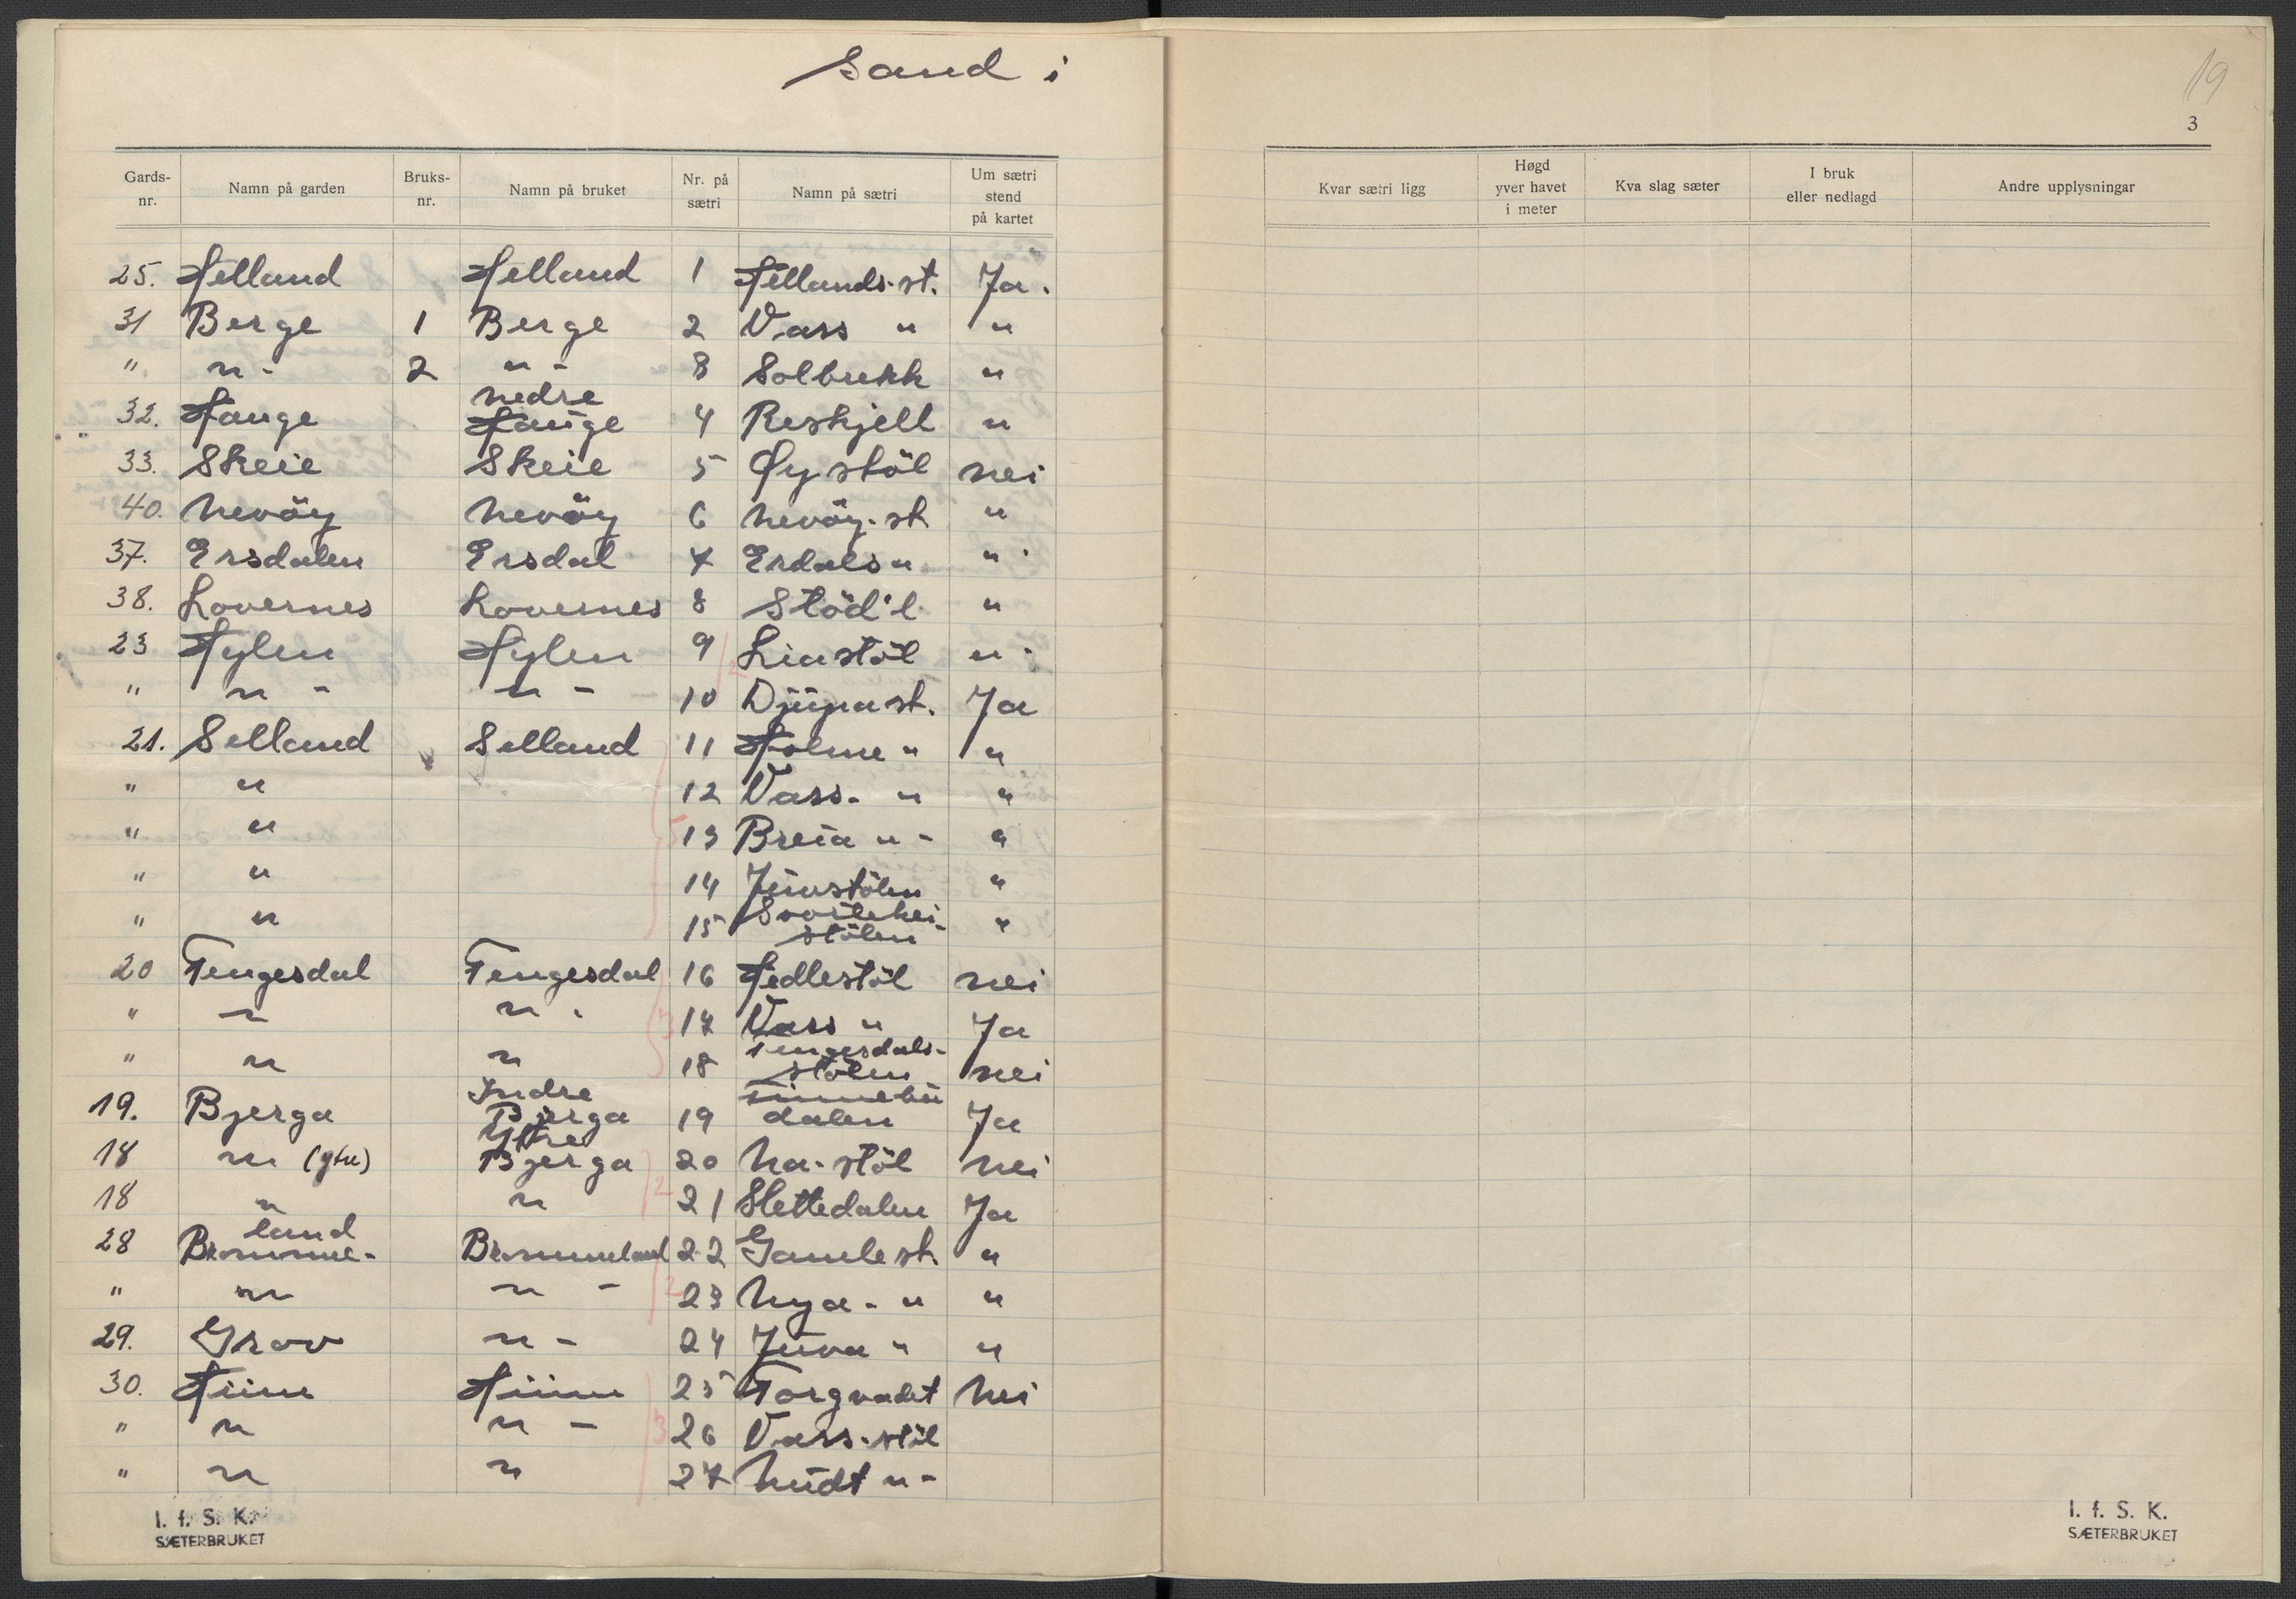 Sand i
Gards-nr. Namn på garden Bruks-nr. Namn på bruket Nr. på sætri Namn på sætri Um sætri stend på kartet
25. Helland Helland 1 Hellands-st. Ja.
31 Berge 1 Berge 2 Vass " "
" " - 2 " - 3 Solbrekk "
32. Hauge nedre Hauge 4 Reskjell "
33. Skeie Skeie 5 Øystöl nei
40. Nevöy Nevöy 6 Nevöy-st "
37. Ersdalen Ersdal 7 Erdals " "
38. Lovernes Lovernes 8 Stöd'l "
23 Hylen Hylen 9 Liastöl " -
" " - " - 10 Djúpa st. Ja
21. Selland Selland 11 Holme " "
" " 12 Vass- " "
" " 13 Breia " - "
" " 14 Júvstölen "
" " 15 Svortehei-stölen "
20 Tengesdal Tengesdal 16 Hedlestöl nei
" " " 17 Vass " Ja
" " " 18 Tengesdals-stölen nei
19. Bjerga Indre Bjerga 19 dalen Ja
18 " (ytre) Ytre Bjerga 20 Na-stöl nei
18 " " 21 Slettedalen Ja
28 Bromme-land Brommeland 22 Gamle st. "
" " " - 23 Nya- " "
29. Grov " - 24 Júva " "
30. Hiim Hiim 25 Torgvadet Nei
" " " - 26 Vass-stöl
" " " 27 Núdt " -
I. f. S. K.
SÆTERBRUKET
19
3
Kvar sætri ligg Høgd yver havet i meter Kva slag sæter I bruk eller nedlagd Andre upplysningar
I. f. S. K.
SÆTERBRUKET